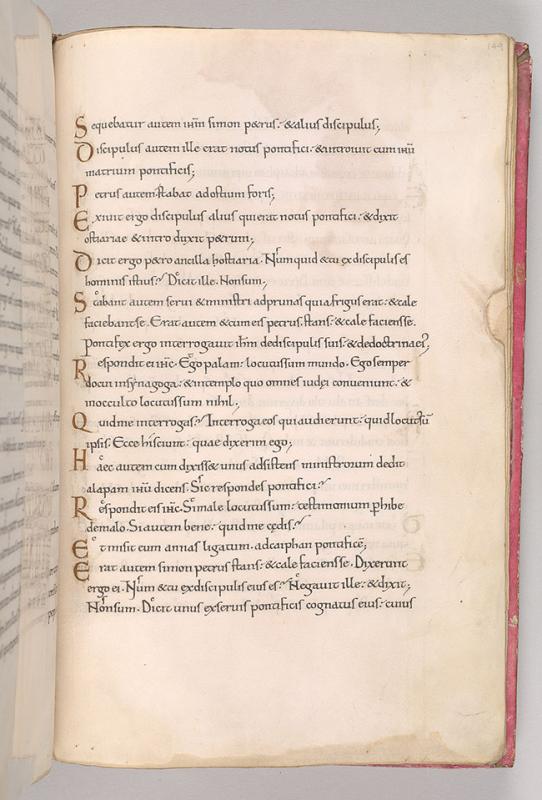 149
Sequebatur autem ihm simon petrus. & alius discipulus;
Discipulus autem ille erat notus pontifici. & introiuit cum ihu
in atrium pontificis;
Petrus autem stabat ad ostium foris;
Exiuit ergo discipulus alius qui erat notus pontifici. & dixit
ostiariae & introduxit petrum;
Dicit ergo petro ancilla hostiaria. Numquid & tu ex discipulis es
hominis istius? Dicit ille. Non sum;
Stabant autem serui & ministri ad prunas quia frigus erat. & cale
faciebant se. Erat autem & cum eis petrus stans. & calefaciens se.
Pontifex ergo interrogauit ihm de discipulis suis. & de doctrina ei;
Respondit ei ihc. Ego palam locutus sum mundo. Ego semper
docui in synagoga. & in templo quo omnes iudei conueniunt. &
in occulto locutus sum nihil;
Quid me interrogas? Interroga eos qui audierunt. quid locutus sū
ipsis. Ecce hi sciunt. quae dixerim ego;
Haec autem cum dixiss& unus adsistens ministrorum dedit
alapam ihu dicens. Sic respondes pontifici?
Respondit ei ihc. Si male locutus sum. testimonium phibe
de malo. Si autem bene. quid me cędis?
Et misit eum annas ligatum. ad caiphan pontificē;
Erat autem simon petrus stans. & calefaciens se. Dixerunt
ergo ei. Num & tu ex discipulis eius es? Negauit ille. & dixit;
Non sum. Dicit unus ex seruis pontificis cognatus eius. cuius